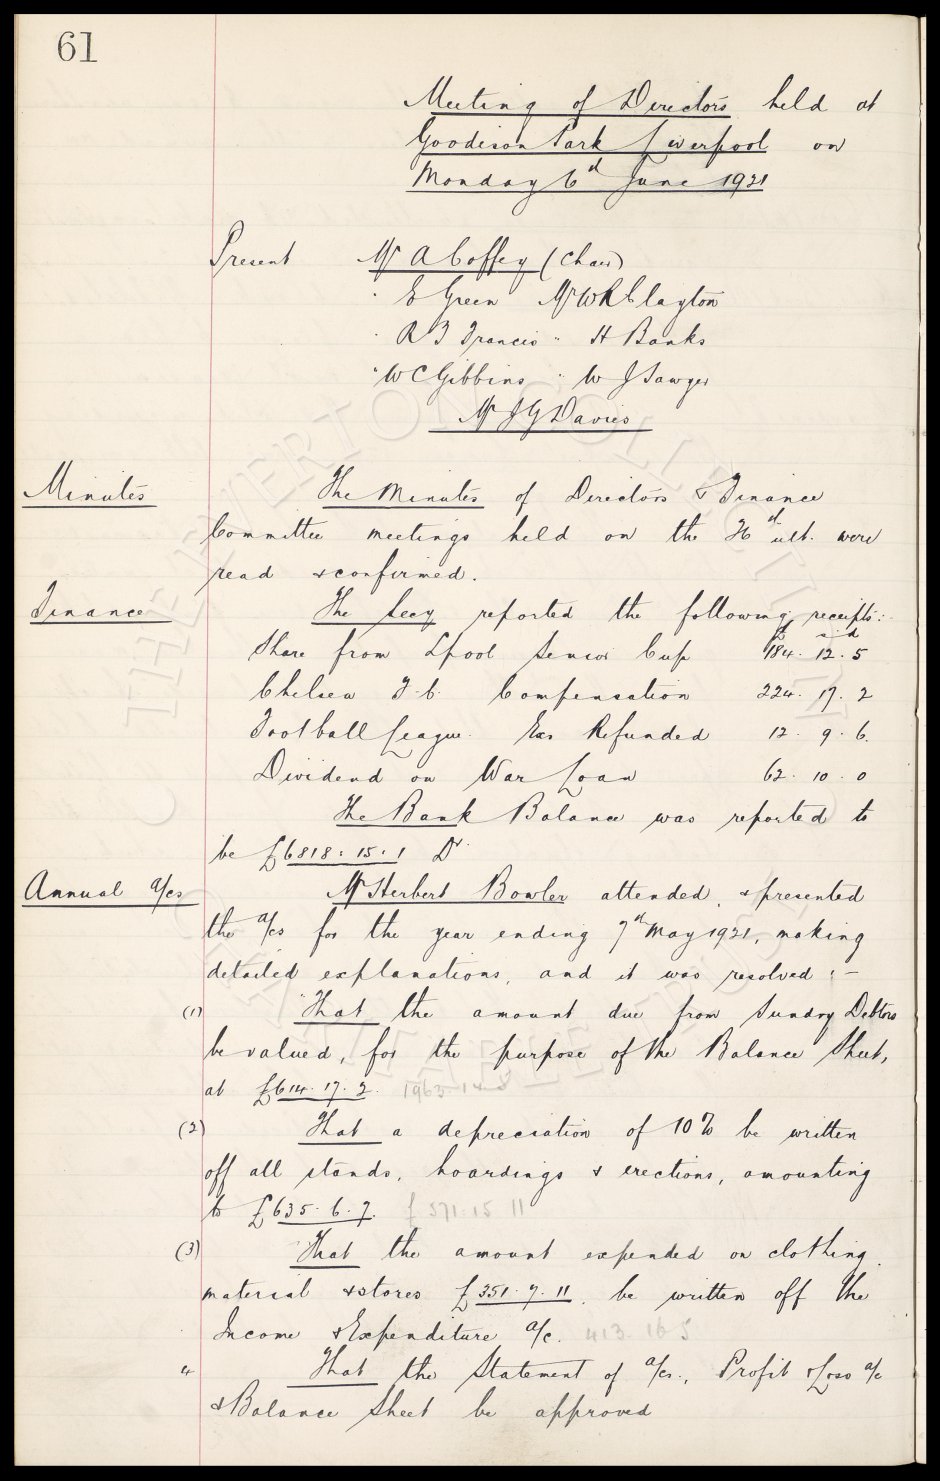 61
Meeting of Directors held at
Goodison Park Liverpool on
Monday 6th June 1921
Present Mr A Coffey (Chair)
" E Green Mr W R Clayton
" R B Francis " H Banks
" W C Gibbins " W J Sawyer
Mr J G Davies
Minutes The Minutes of Directors & Finance
Committee meetings held on the 26th ult. were
read & confirmed.
Finance The Secy reported the following receipts:
£ s d
Share from Lpool Senior Cup 184. 12. 5
Chelsea F.C. Compensation 224. 17. 2
Football League Exs Refunded 12. 9. 6.
Dividend on War Loan 62. 10. 0
The Bank Balance was reported to
be £6818: 15: 1 Dr.
Annual a/cs Mr Herbert Bowler attended, & presented
the a/cs for the year ending 7th May 1921, making
detailed explanations, and it was resolved :-
(1) "That the amount due from Sundry Debtors
be valued, for the purpose of the Balance Sheet,
at £614. 17. 2. 1963. 14
(2) That a depreciation of 10% be written
off all stands, hoardings & erections, amounting
to £635. 6. 7. £ 571. 15 11
(3) "That the amount expended on clothing,
material & stores £351. 7. 11. be written off the
Income & Expenditure a/c. 413. 16 5
4 That the Statement of a/cs., Profit & Loss a/c
& Balance Sheet be approved
THE EVERTON COLLECTION
CHARITABLE TRUST